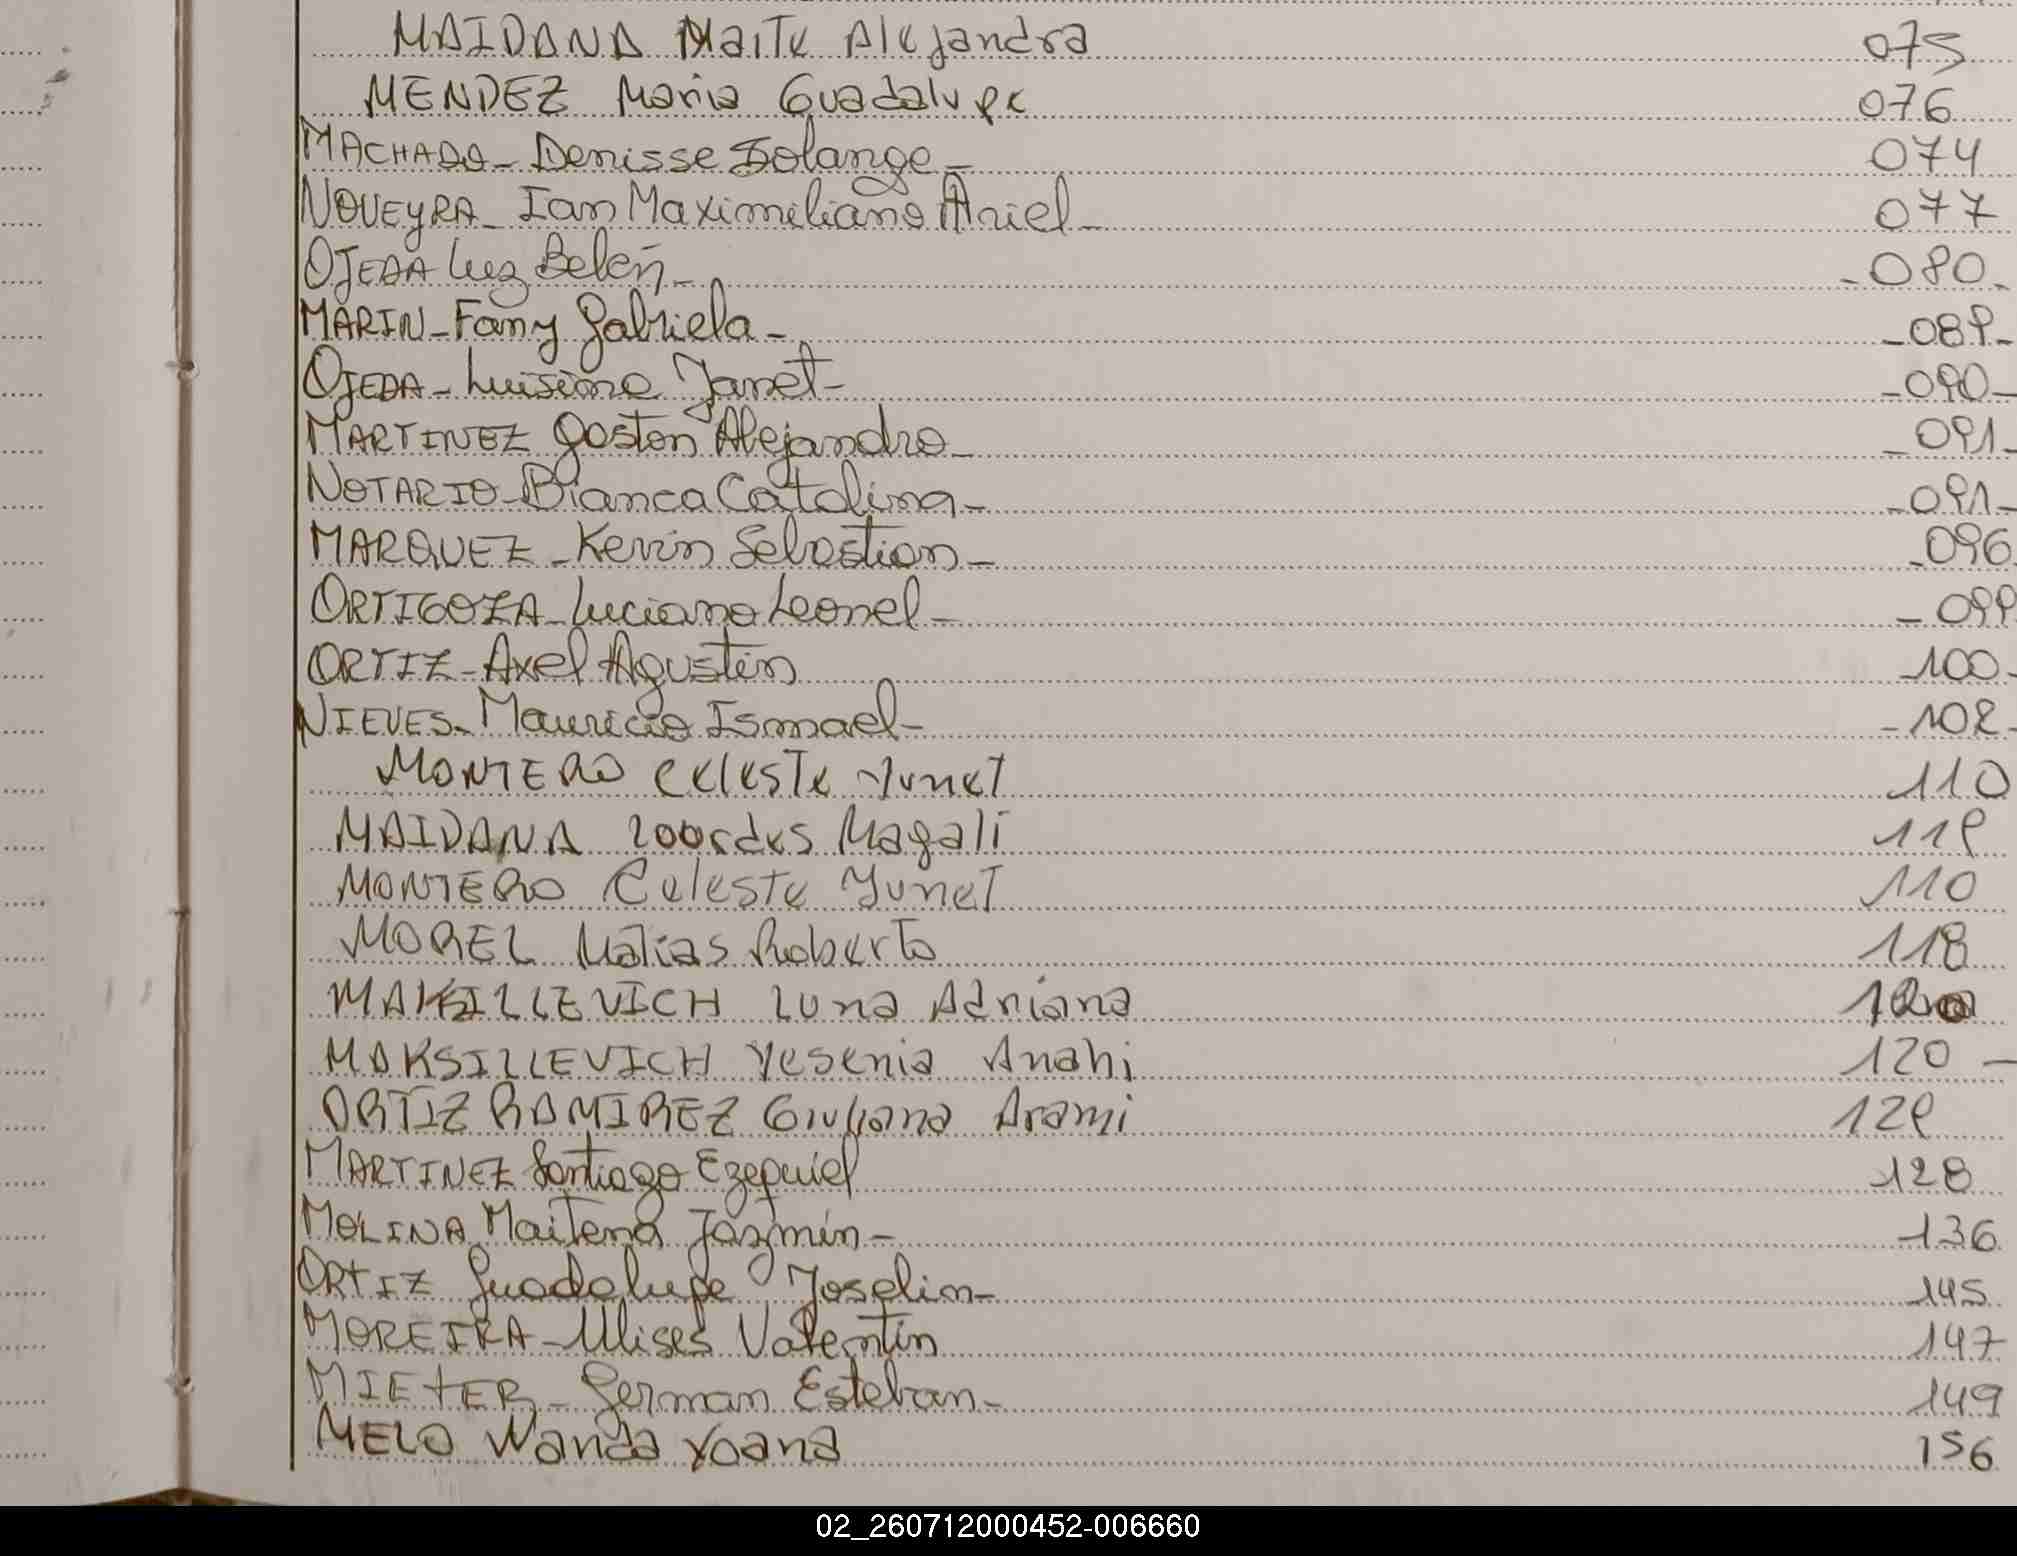 MAIDANA Maite Alejandra 075
MENDEZ Maria Guadalupe 076
MACHADO - Denisse Solange - 074
NOVEYRA - Ian Maximiliano Ariel - 077
OJEDA Luz Belén - - 080 -
MARIN - Fany Gabriela - - 089 -
OJEDA - Luisina Janet - - 090 -
MARTINEZ Gaston Alejandro - - 091 -
NOTARIO - Bianca Catalina - - 091 -
MARQUEZ - Kevin Sebastian - - 096
ORTIGOZA - Luciano Leonel - - 099
ORTIZ - Axel Agustin - 100 -
NIEVES - Mauricio Ismael - - 102 -
MONTERO Celeste Yunet 110
MAIDANA Lourdes Magali 119
MONTERO Celeste Yunet 110
MOREL Matias Roberto 118
MAKSILLEVICH Luna Adriana 120
MAKSILLEVICH Yesenia Anahi 120 -
ORTIZ RAMIREZ Giuliana Arami 129
MARTINEZ Santiago Ezequiel 128
MOLINA Maitena Jazmín - 136
ORTIZ Guadalupe Joselin - 145
MOREIRA - Ulises Valentín 147
MIETER - German Esteban - 149
MELO Wanda Yoana 156
02_260712000452-006660